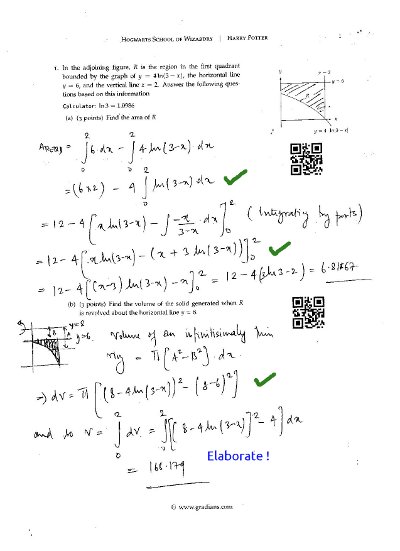 HOGWARTS SCHOOL OF WIZARDRY | HARRY POTTER
1. In the adjoining figure, R is the region in the first quadrant
bounded by the graph of y = 4 ln(3 − x), the horizontal line
y = 6, and the vertical line x = 2. Answer the following ques-
tions based on this information
Calculator: ln 3 = 1.0986
(a) (3 points) Find the area of R
y = 6
y = 4 ln(3 − x)
= ∫₀² 6 dx − ∫₀² 4 ln(3-x) dx
= (6×2) − 4 ∫₀² ln(3-x) dx
= 12 − 4 [x ln(3-x) − ∫ -x/(3-x) dx]₀² (Integrating by parts)
= 12 − 4 [x ln(3-x) − (x + 3 ln(3-x))]₀²
= 12 − 4 [(x-3) ln(3-x) − x]₀² = 12 − 4(3ln3 − 2) = 6.81667
(b) (3 points) Find the volume of the solid generated when R
is revolved about the horizontal line y = 8.
y=8
y=6
Volume of an infinitisimaly thin
ring = π[A² − B²] . dx
⇒ dV = π[(8 − 4 ln(3-x))² − (8-6)²]
and so V = ∫₀² dV = ∫₀² [[8 − 4 ln(3-x)]² − 4] dx
= 168.179
Elaborate !
© www.gradians.com